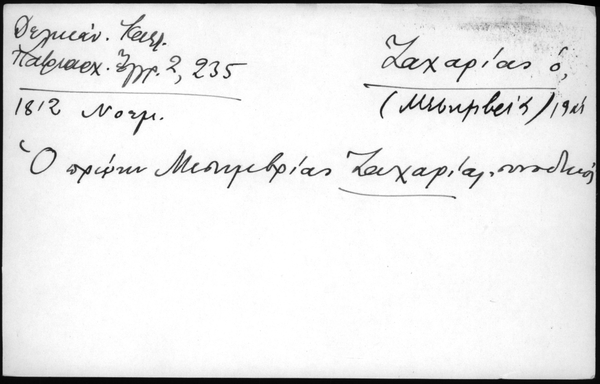 Δελικάν. Καλλ.
Πατριαρχ. Ἔγγρ. 2, 235
1812 Νοεμ.
Ζαχαρίας ὁ,
(Μεσημβρίας) 19ος
Ὁ πρώην Μεσημβρίας Ζαχαρίας, συνοδικός